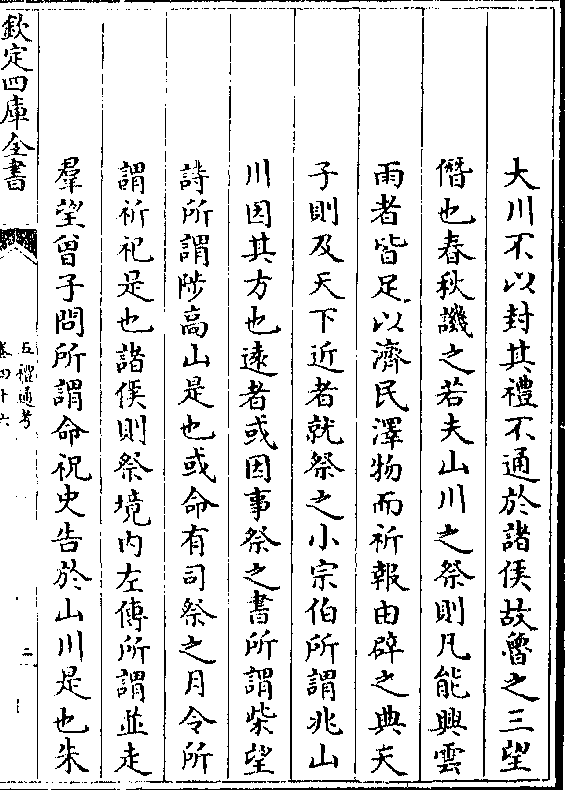 大川不以封其禮不通於諸侯故魯之三望
僭也春秋譏之若夫山川之祭則凡能興雲
雨者皆足以濟民澤物而祈報由辟之典天
子則及天下近者就祭之小宗伯所謂兆山
川因其方也遠者或因事祭之書所謂柴望
詩所謂陟高山是也或命有司祭之月令所
謂祈祀是也諸侯則祭境内左傳所謂並走
羣望曾子問所謂命祝史告於山川是也朱
欽定四庫全書
五禮通考
卷四十六
二